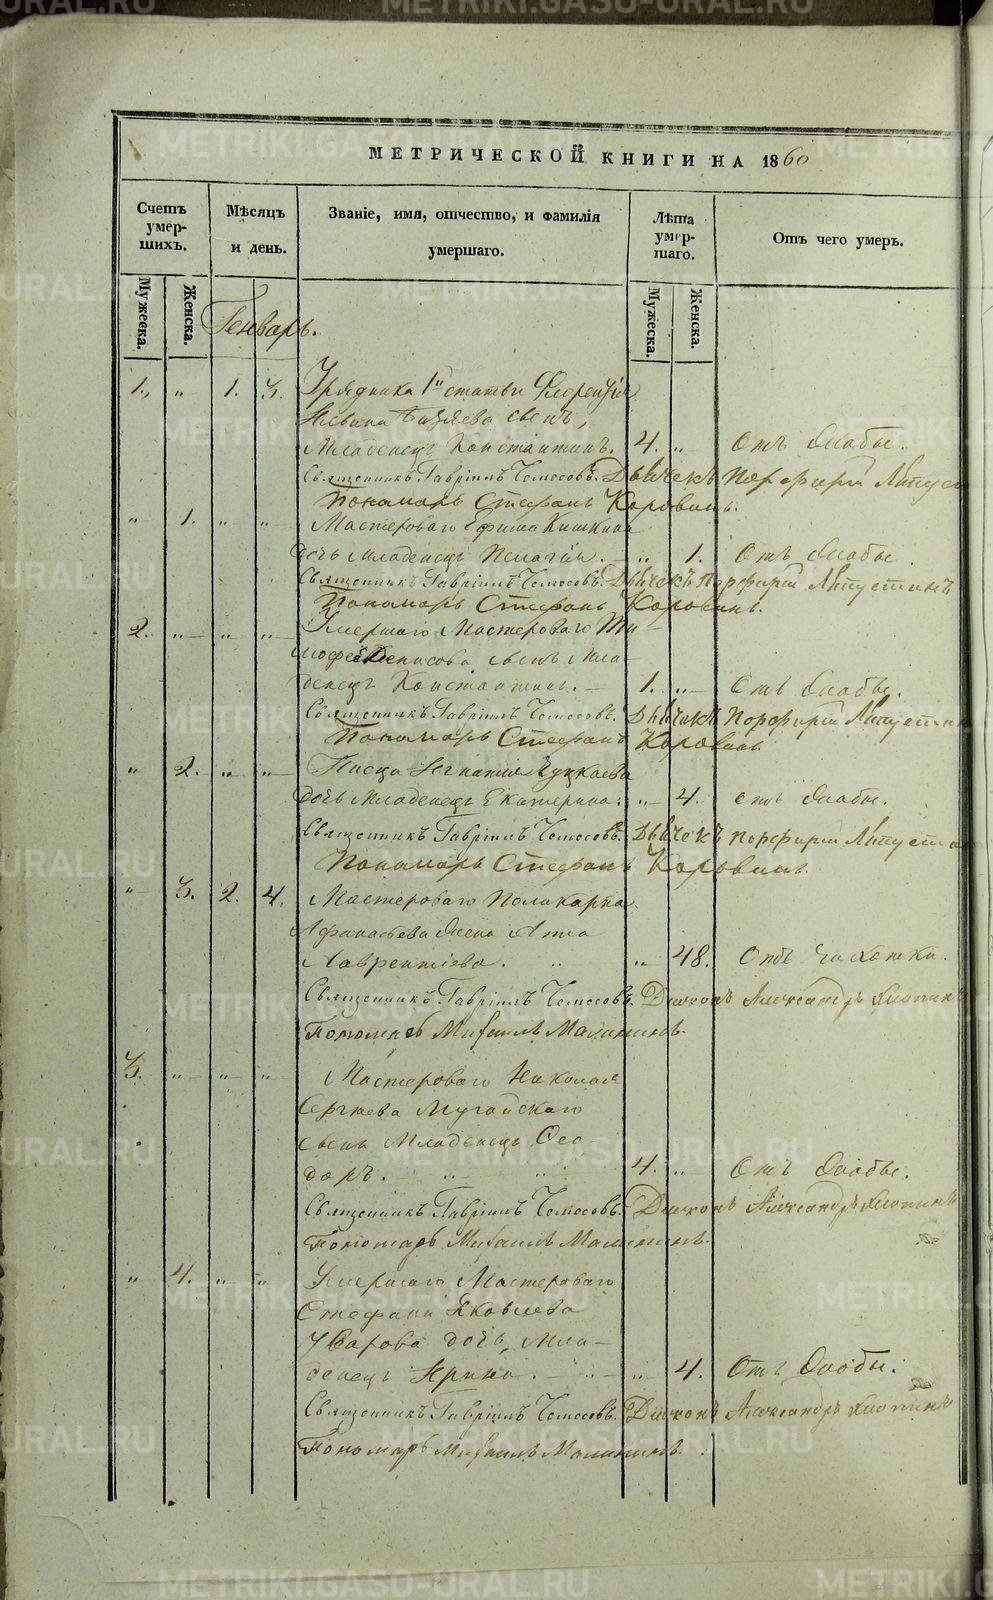 МЕТРИЧЕСКОЙ КНИГИ НА 1860
Счетъ умер-шихъ.
Мѣсяцъ и день.
Званіе, имя, отчество, и фамилія умершаго.
Лѣта умер-шаго.
Отъ чего умеръ.
Мужеска.
Женска.
Мужеска.
Женска.
Генварь.
1. „ 1. 3. Урядника 1й статьи
сынъ,
Младенецъ Константинъ. 4. „ Отъ слабы.
Священникъ Гавріилъ Дьячекъ Порфирій
Пономарь Стефанъ Коровинъ.
„ 1. „ „ Мастероваго Ефима Кишкина
дочь младенецъ Пелагія. „ 1. Отъ слабы.
Священникъ Гавріилъ Дьячекъ Порфирій
Пономарь Стефанъ Коровинъ.
2. „ „ „ Умершаго Мастероваго Ти-
мофея Денисова сынъ мла-
денецъ Константинъ. 1. „ Отъ слабы.
Священникъ Гавріилъ Дьячекъ Порфирій
Пономарь Стефанъ Коровинъ
„ 2. „ „ Писца Игнатія
дочь Младенецъ Екатерина. „ 4. отъ слабы.
Священникъ Гавріилъ Дьячекъ Порфирій
Пономарь Стефанъ Коровинъ.
„ 3. 2. 4. Мастероваго Поликарпа
Афанасьева жена Анна
Лаврентіева. „ 48. Отъ чахотки.
Священникъ Гавріилъ Диаконъ Александръ
Пономарь Михаилъ Малининъ.
3. „ „ „ Мастероваго Николая
Сергѣева Мугайскаго
сынъ Младенецъ Ѳео-
доръ. 4. „ Отъ слабы.
Священникъ Гавріилъ Диаконъ Александръ
Пономарь Михаилъ Малининъ.
„ 4. „ „ Умершаго Мастероваго
Стефана Яковлева
Уварова дочь, мла-
денецъ Ирина. „ 4. Отъ слабы.
Священникъ Гавріилъ Диаконъ Александръ
Пономарь Михаилъ Малининъ.
METRIKI.GASO-URAL.RU